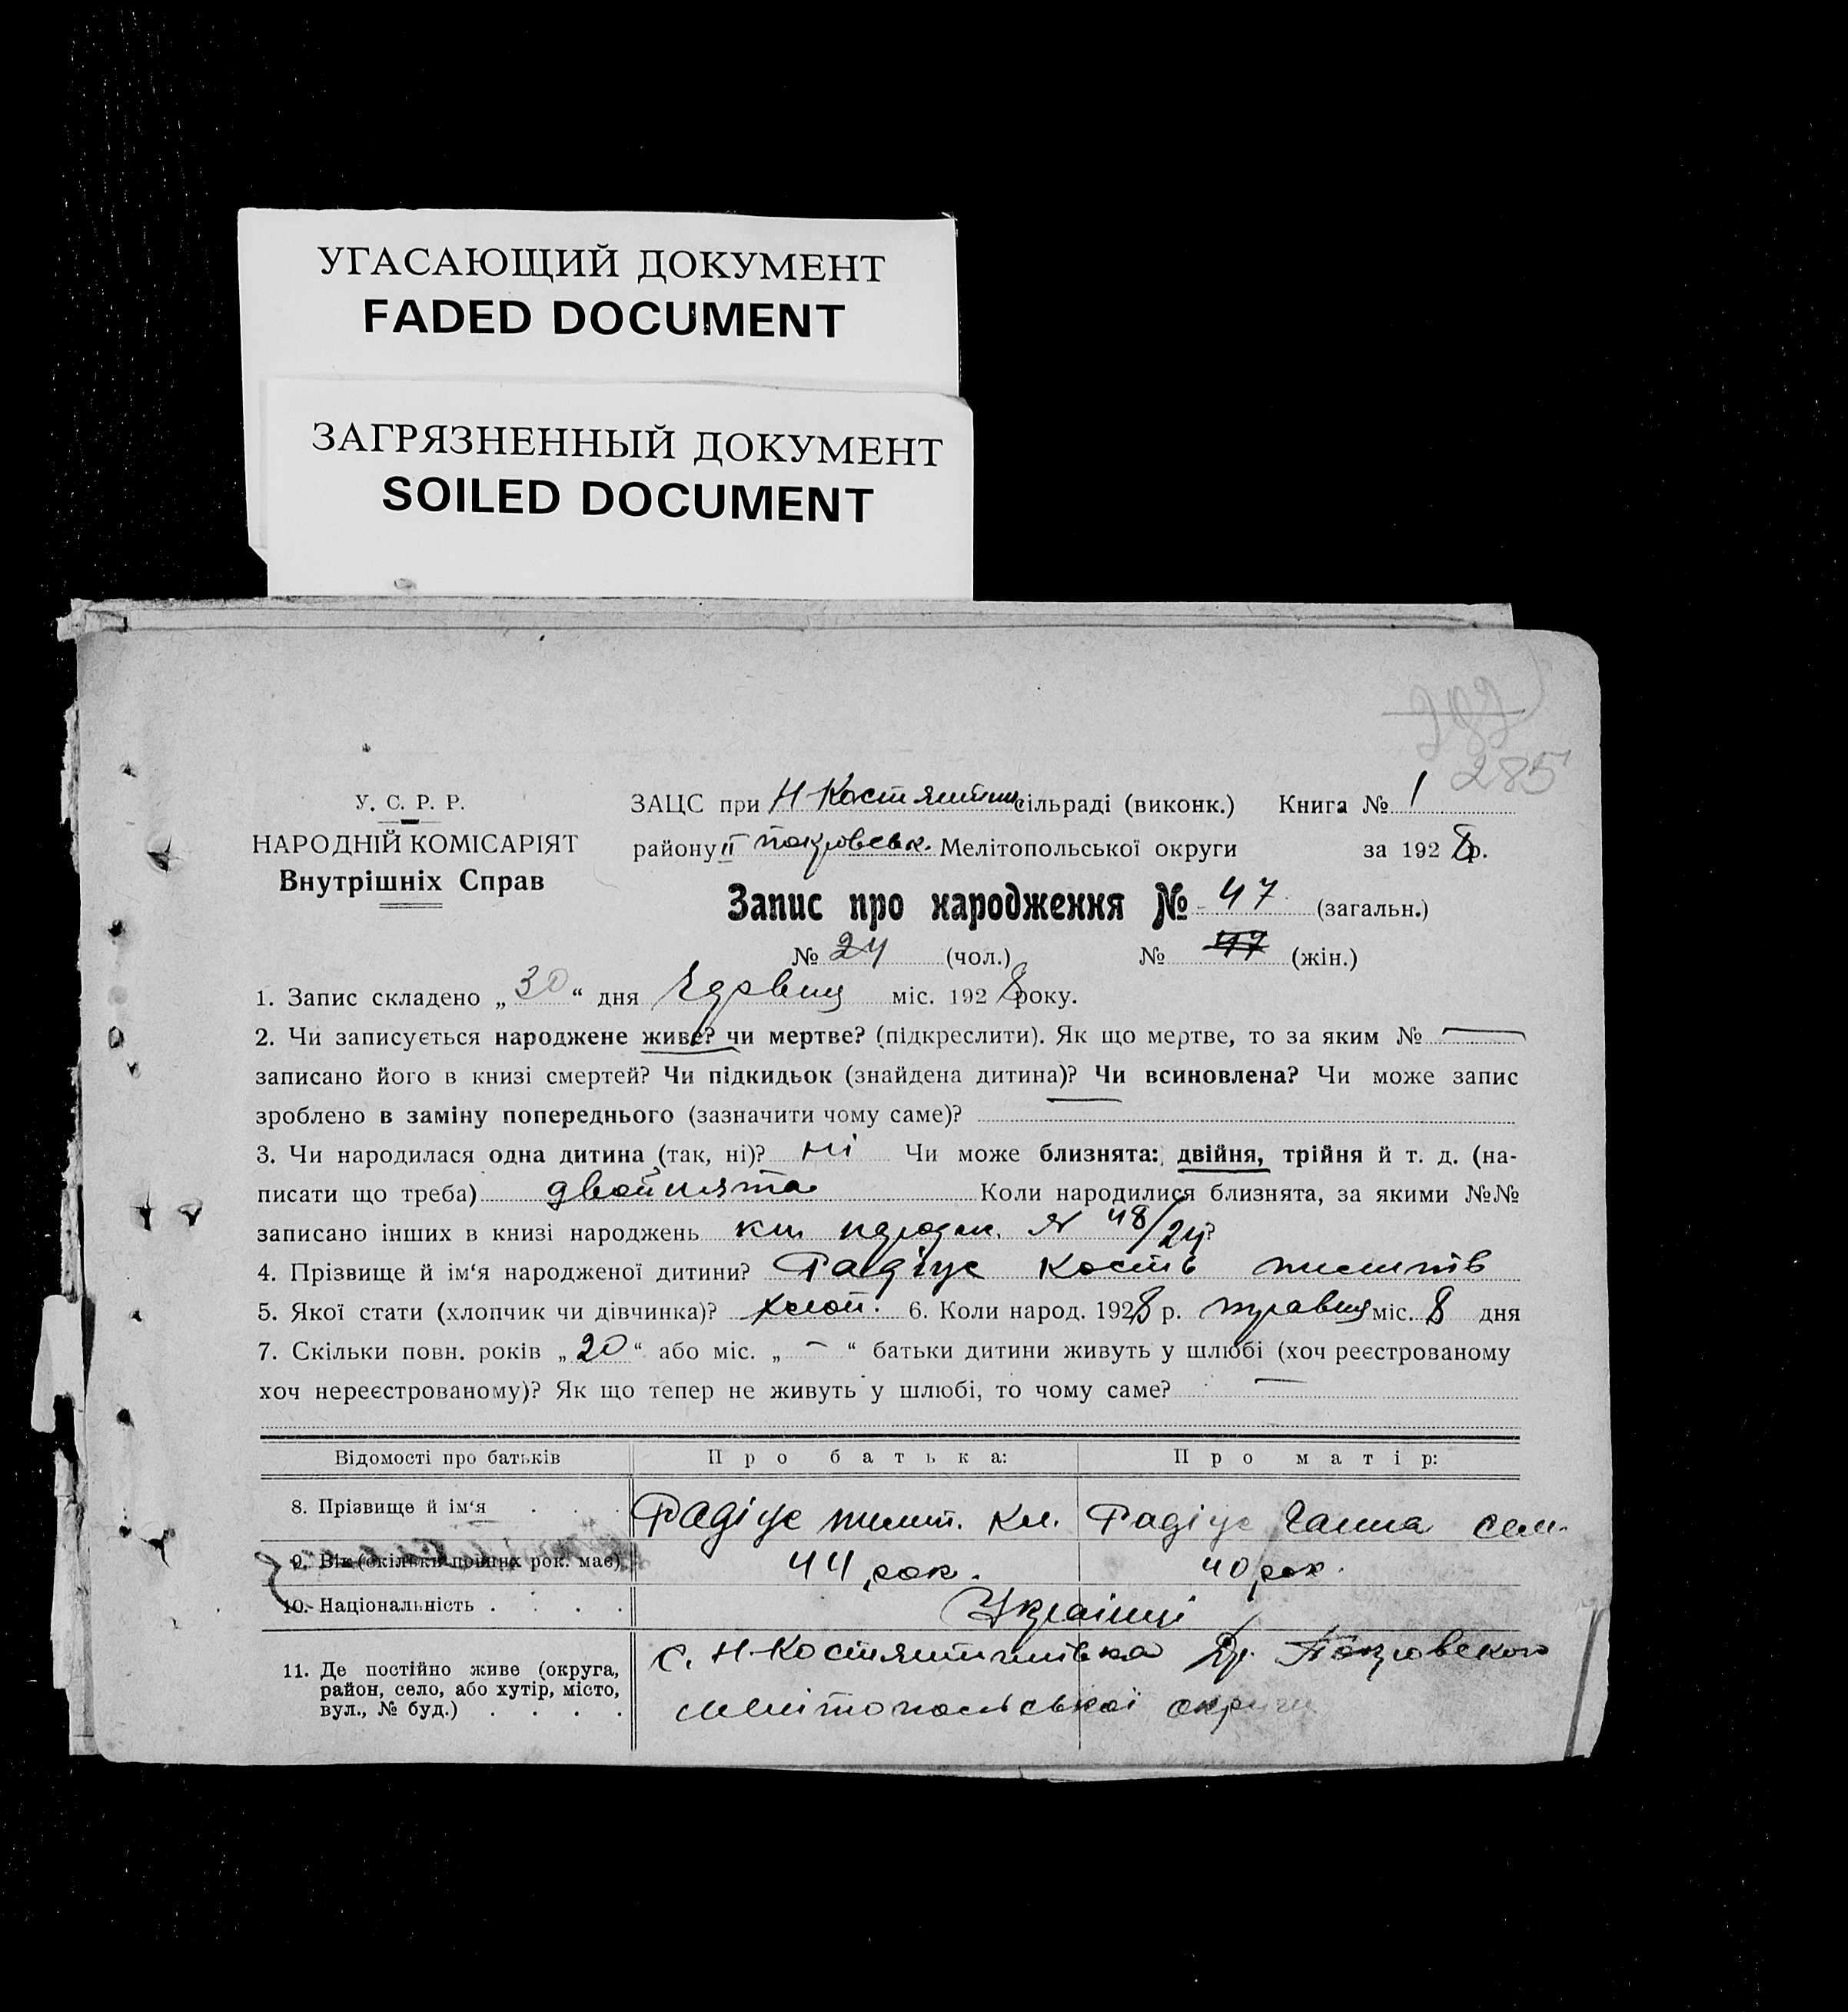 УГАСАЮЩИЙ ДОКУМЕНТ
FADED DOCUMENT
ЗАГРЯЗНЕННЫЙ ДОКУМЕНТ
SOILED DOCUMENT
285
У. С. Р. Р.
НАРОДНІЙ КОМІСАРІЯТ
Внутрішніх Справ
ЗАЦС при Н Костянтин сільраді (виконк.) Книга № 1
району ІІ покровськ. Мелітопольської округи за 1928 р.
Запис про народження № 47 (загальн.)
№ 24 (чол.) № 47 (жін.)
1. Запис складено „30“ дня міс. 1928 року.
2. Чи записується народжене живе? чи мертве? (підкреслити). Як що мертве, то за яким № —
записано його в книзі смертей? Чи підкидьок (знайдена дитина)? Чи всиновлена? Чи може запис
зроблено в заміну попереднього (зазначити чому саме)?
3. Чи народилася одна дитина (так, ні)? ні Чи може близнята: двійня, трійня й т. д. (на-
писати що треба) двойнята Коли народилися близнята, за якими №№
записано інших в книзі народжень кн народж. № 48/24?
4. Прізвище й ім‘я народженої дитини? Радіус Кость
5. Якої стати (хлопчик чи дівчинка)? хлоп. 6. Коли народ. 1928 р. травня міс. 8 дня
7. Скільки повн. років „20“ або міс. „—“ батьки дитини живуть у шлюбі (хоч реєстрованому
хоч нереєстрованому)? Як що тепер не живуть у шлюбі, то чому саме? —
Відомості про батьків Про батька: Про матір:
8. Прізвище й ім‘я Радіус Радіус Ганна сем.
9. Вік (скільки повних рок. має) 44 рок. 40 рок.
10. Національність Українці
11. Де постійно живе (округа, район, село, або хутір, місто, вул., № буд.) с. Н-Костянтинівка Покровського
Мелітопольської округи